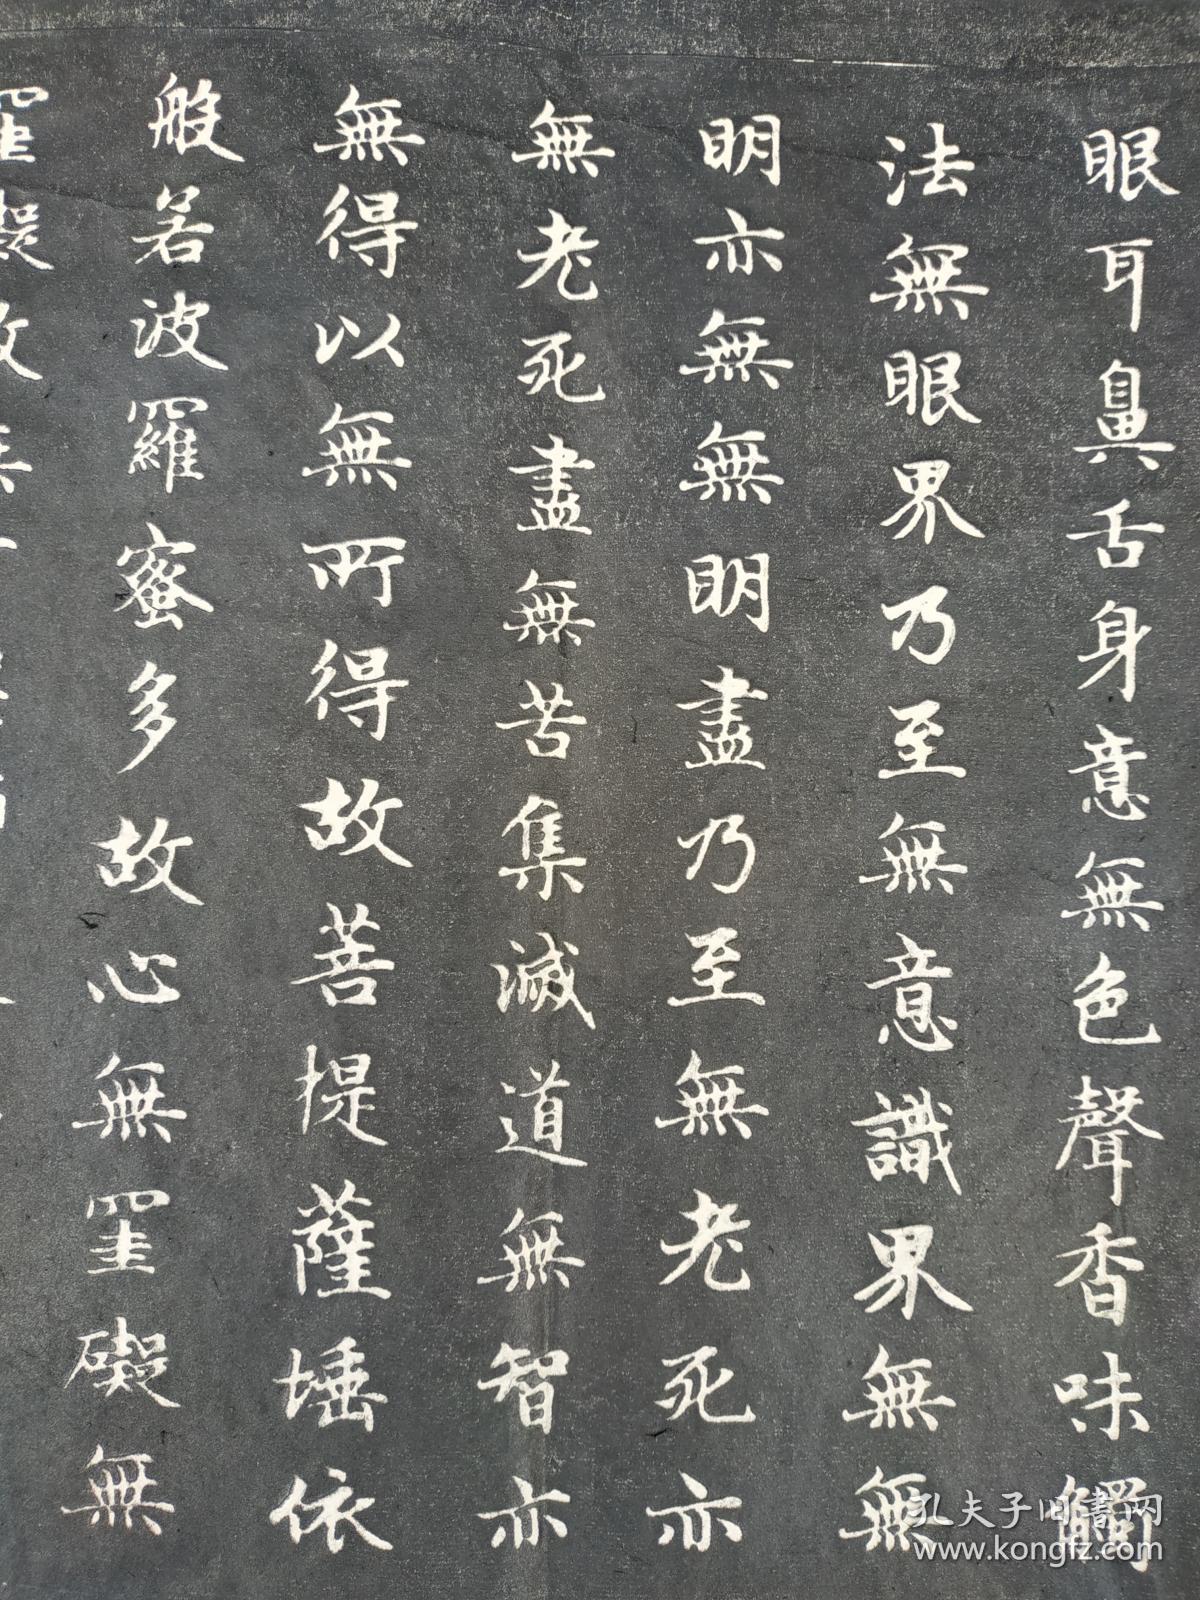 眼耳鼻舌身意無色聲香味觸
法無眼界乃至無意識界無無
明亦無無明盡乃至無老死亦
無老死盡無苦集滅道無智亦
無得以無所得故菩提薩埵依
般若波羅蜜多故心無罣礙無
罣礙故無
孔夫子旧書网
www.kongfz.com